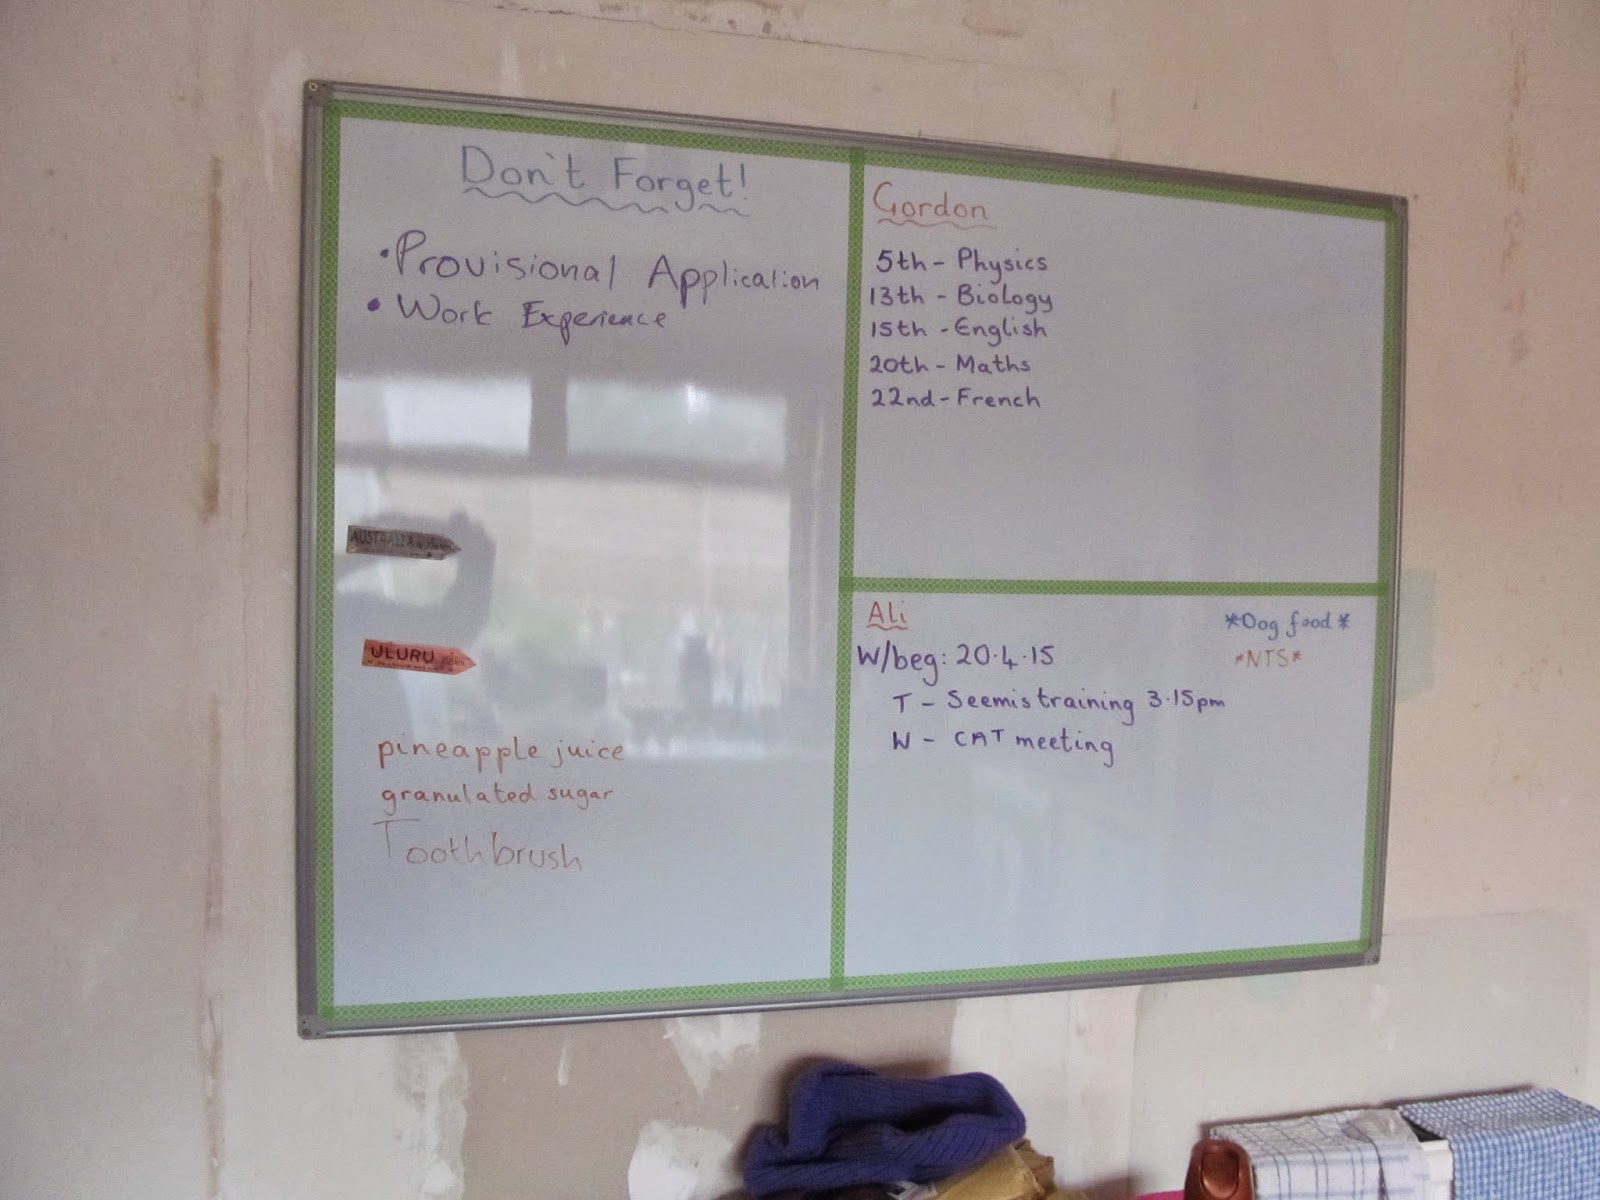 Don't Forget!
• Provisional Application
• Work Experience
AUSTRALIA
ULURU
pineapple juice
granulated sugar
Toothbrush
Gordon
5th - Physics
13th - Biology
15th - English
20th - Maths
22nd - French
Ali
*Dog food*
*NTS*
W/beg: 20.4.15
T - Seemis training 3.15pm
W - CAT meeting